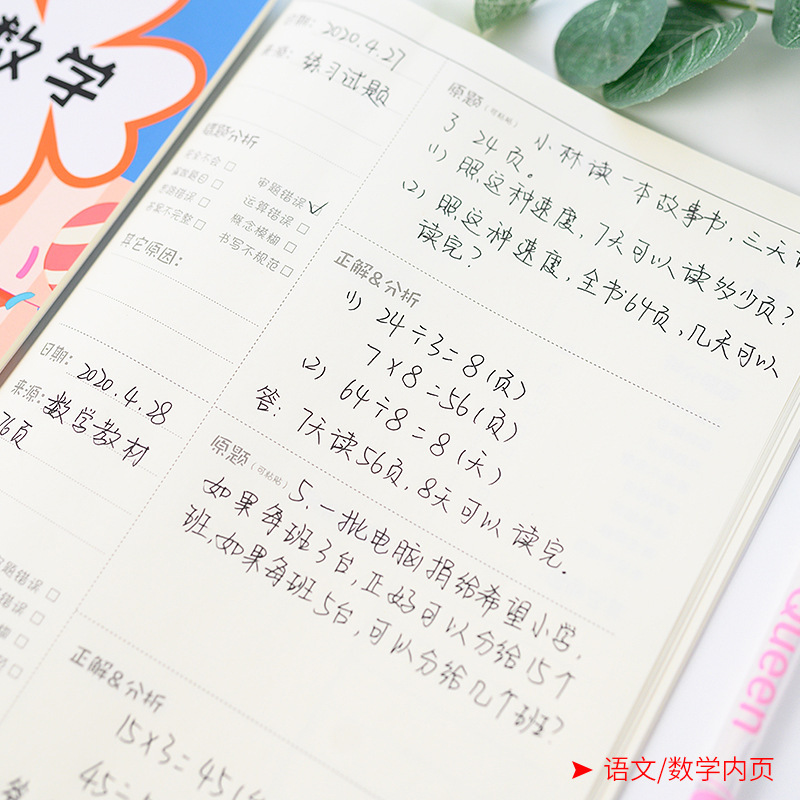 数学
日期：2020.4.27
来源：练习试题
错题分析
完全不会 □ 审题错误 ☑
误解题目 □ 运算错误 □
思路错误 □ 概念模糊 □
答案不完整 □ 书写不规范 □
其它原因：
原题（可粘贴） 小林读一本故事书，三天
3 24页。
(1) 照这种速度，7天可以读多少页？
(2) 照这种速度，全书64页，几天可以
读完？
正解&分析
(1) 24÷3=8(页)
7×8=56(页)
(2) 64÷8=8(天)
答：7天读56页，8天可以读完.
日期：2020.4.28
来源：数学教材
76页
审题错误 □
错误 □
糊 □
原题（可粘贴） 5.一批电脑捐给希望小学，
如果每班3台，正好可以分给15个
班，如果每班5台，可以分给几个班？
正解&分析
15×3=45(
45÷
Queen
➤ 语文/数学内页